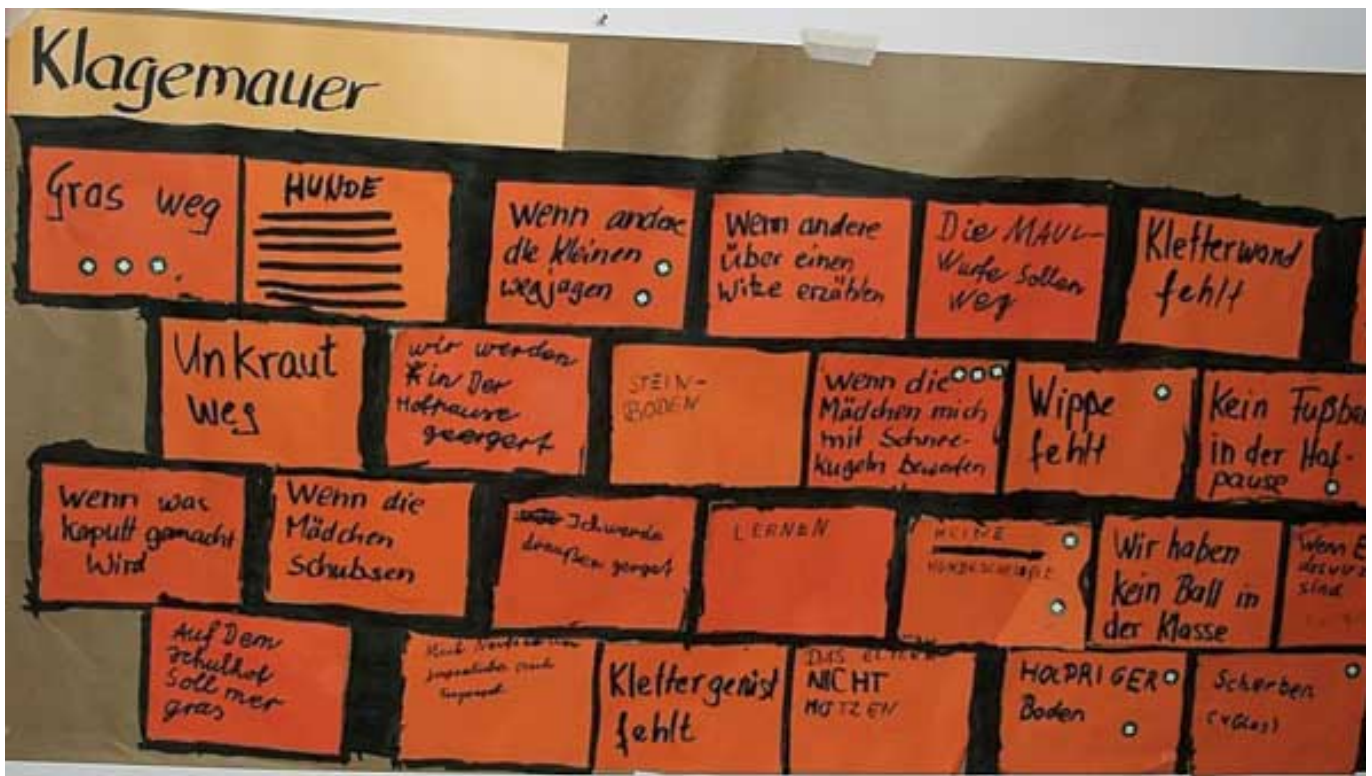 Klagemauer
Gras weg
HUNDE
Wenn andere
die kleinen
wegjagen
Wenn andere
über einen
Witze erzählen
Die MAUL-
Würfe sollen
weg
Kletterwand
fehlt
Unkraut
weg
wir werden
in Der
Hofpause
georgert
STEIN-
BODEN
Wenn die
Mädchen mich
mit Schnee-
kugeln bewerfen
Wippe
fehlt
Kein Fußba
in der Hof-
pause
Wenn was
kaputt gemacht
Wird
Wenn die
Mädchen
Schubsen
Ich werde
draußen gergat
LERNEN
KEINE
HUNDESCHEIẞE
Wir haben
kein Ball in
der Klasse
Wenn
sind
Auf Dem
Schulhof
Soll mer
gras
Klettergerüst
fehlt
NICHT
MOTZEN
HOLPRIGER
Boden
Scherben
(v Glas)